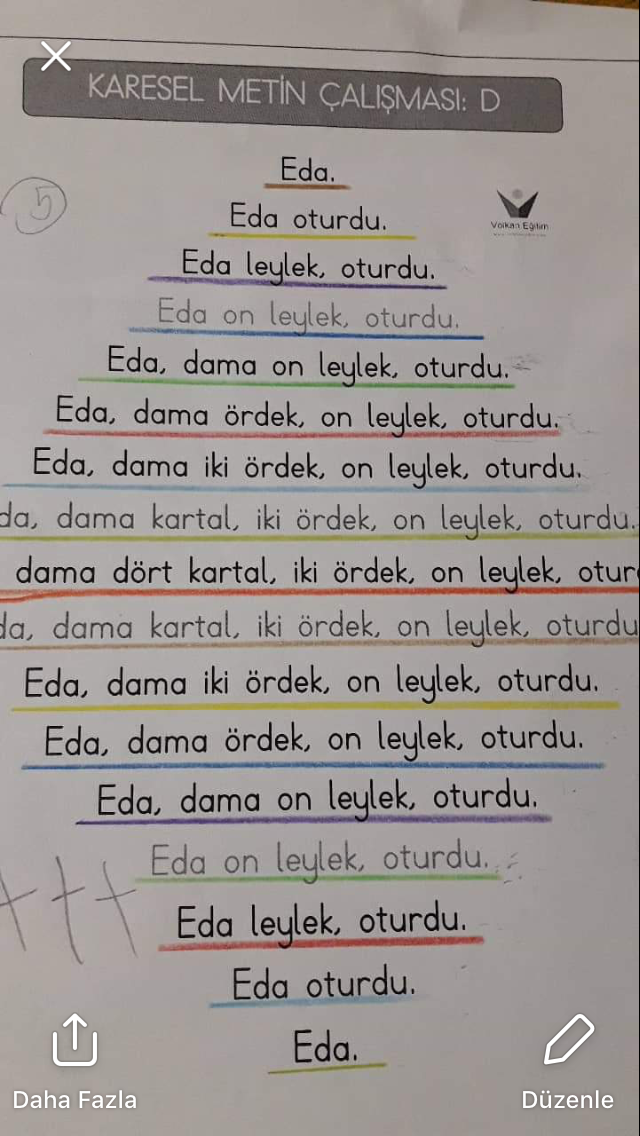 KARESEL METİN ÇALIŞMASI: D
5
Eda.
Volkan Eğitim
Eda oturdu.
Eda leylek, oturdu.
Eda on leylek, oturdu.
Eda, dama on leylek, oturdu.
Eda, dama ördek, on leylek, oturdu.
Eda, dama iki ördek, on leylek, oturdu.
da, dama kartal, iki ördek, on leylek, oturdu.
dama dört kartal, iki ördek, on leylek, otur
da, dama kartal, iki ördek, on leylek, oturdu
Eda, dama iki ördek, on leylek, oturdu.
Eda, dama ördek, on leylek, oturdu.
Eda, dama on leylek, oturdu.
Eda on leylek, oturdu.
Eda leylek, oturdu.
Eda oturdu.
Eda.
Daha Fazla
Düzenle